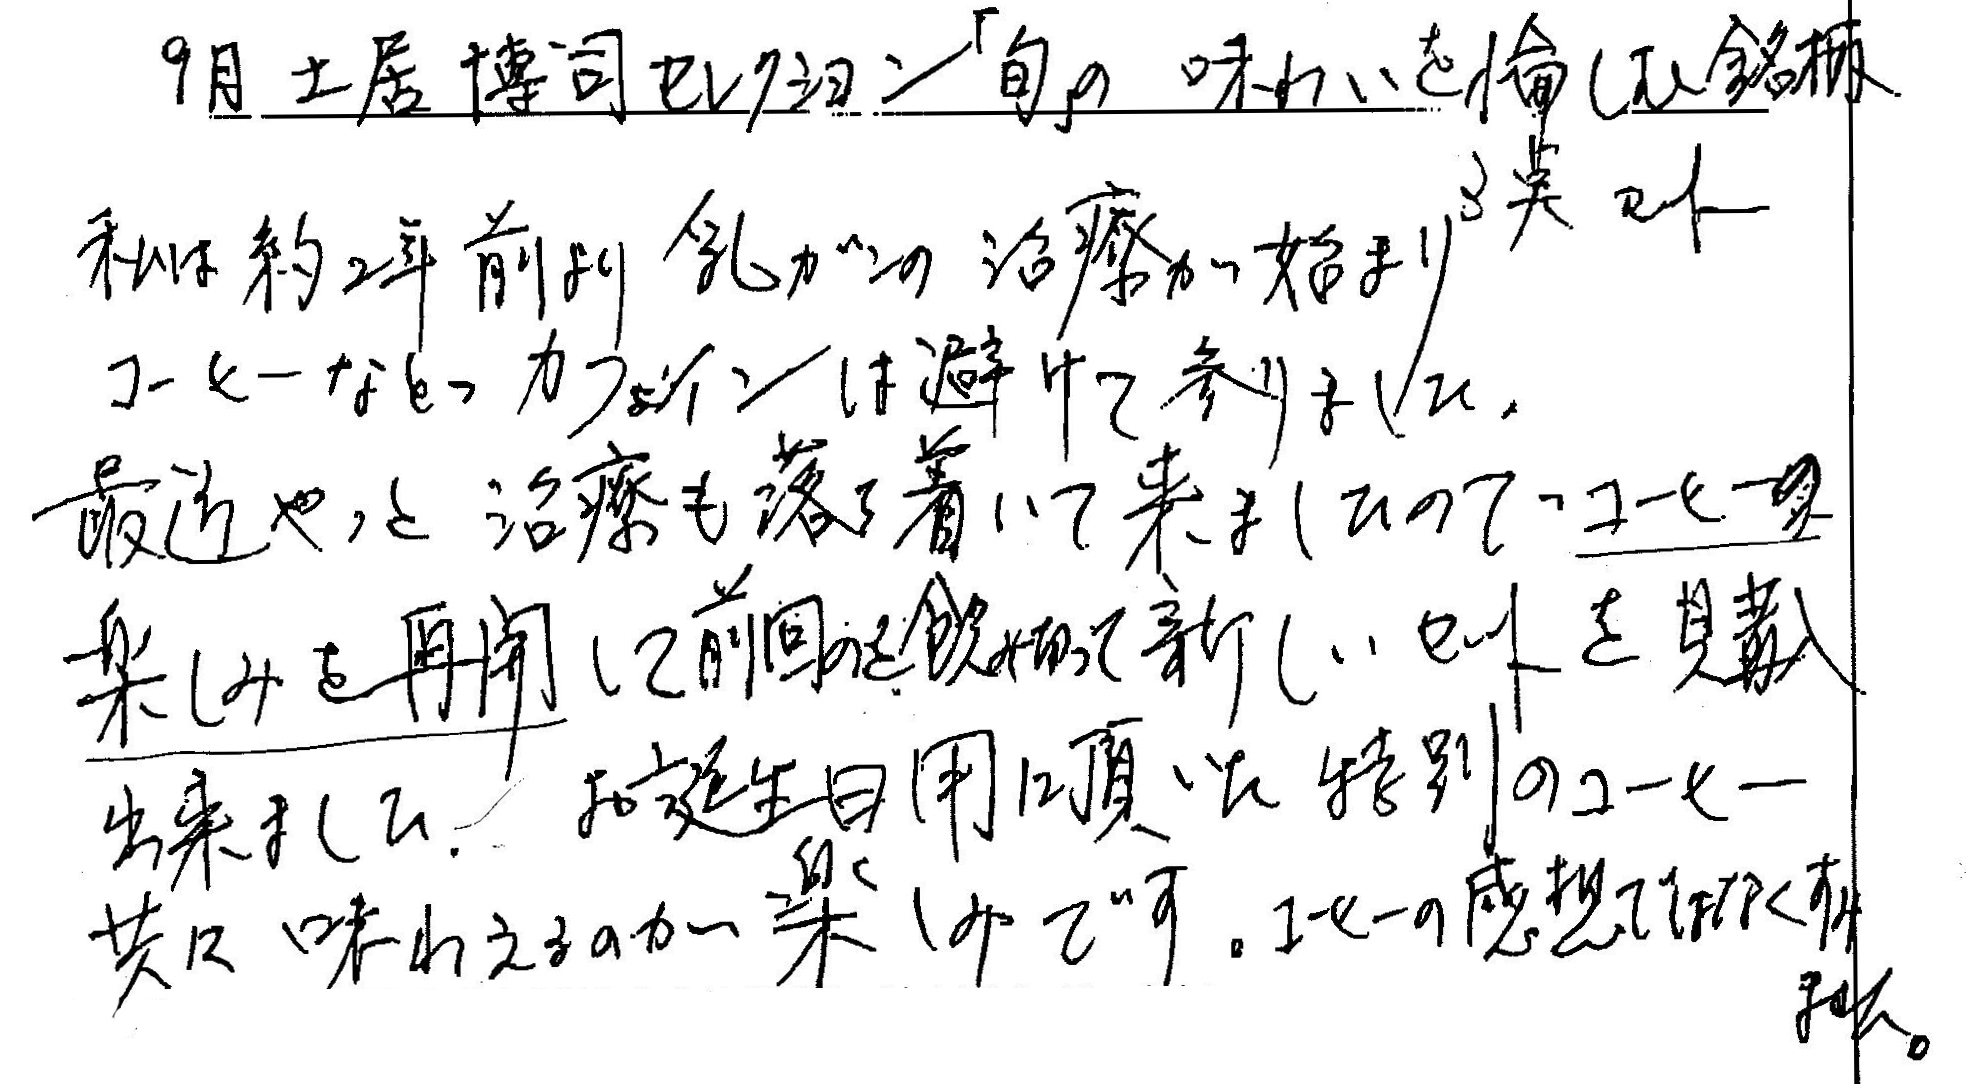 9月 土居博司セレクション「旬」の 味わいを愉しむ銘柄
3点セット
私は約2年前より 乳がんの 治療が始まり
コーヒーなど カフェインは避けて参りました。
最近やっと 治療も落ち着いて来ましたので コーヒーの
楽しみを再開して前回のを飲み切って新しいセットを購入
出来ました。 お誕生日用に頂いた 特別のコーヒー
共に 味わえるのが 楽しみです。コーヒーの感想ではなくすみ
ません。